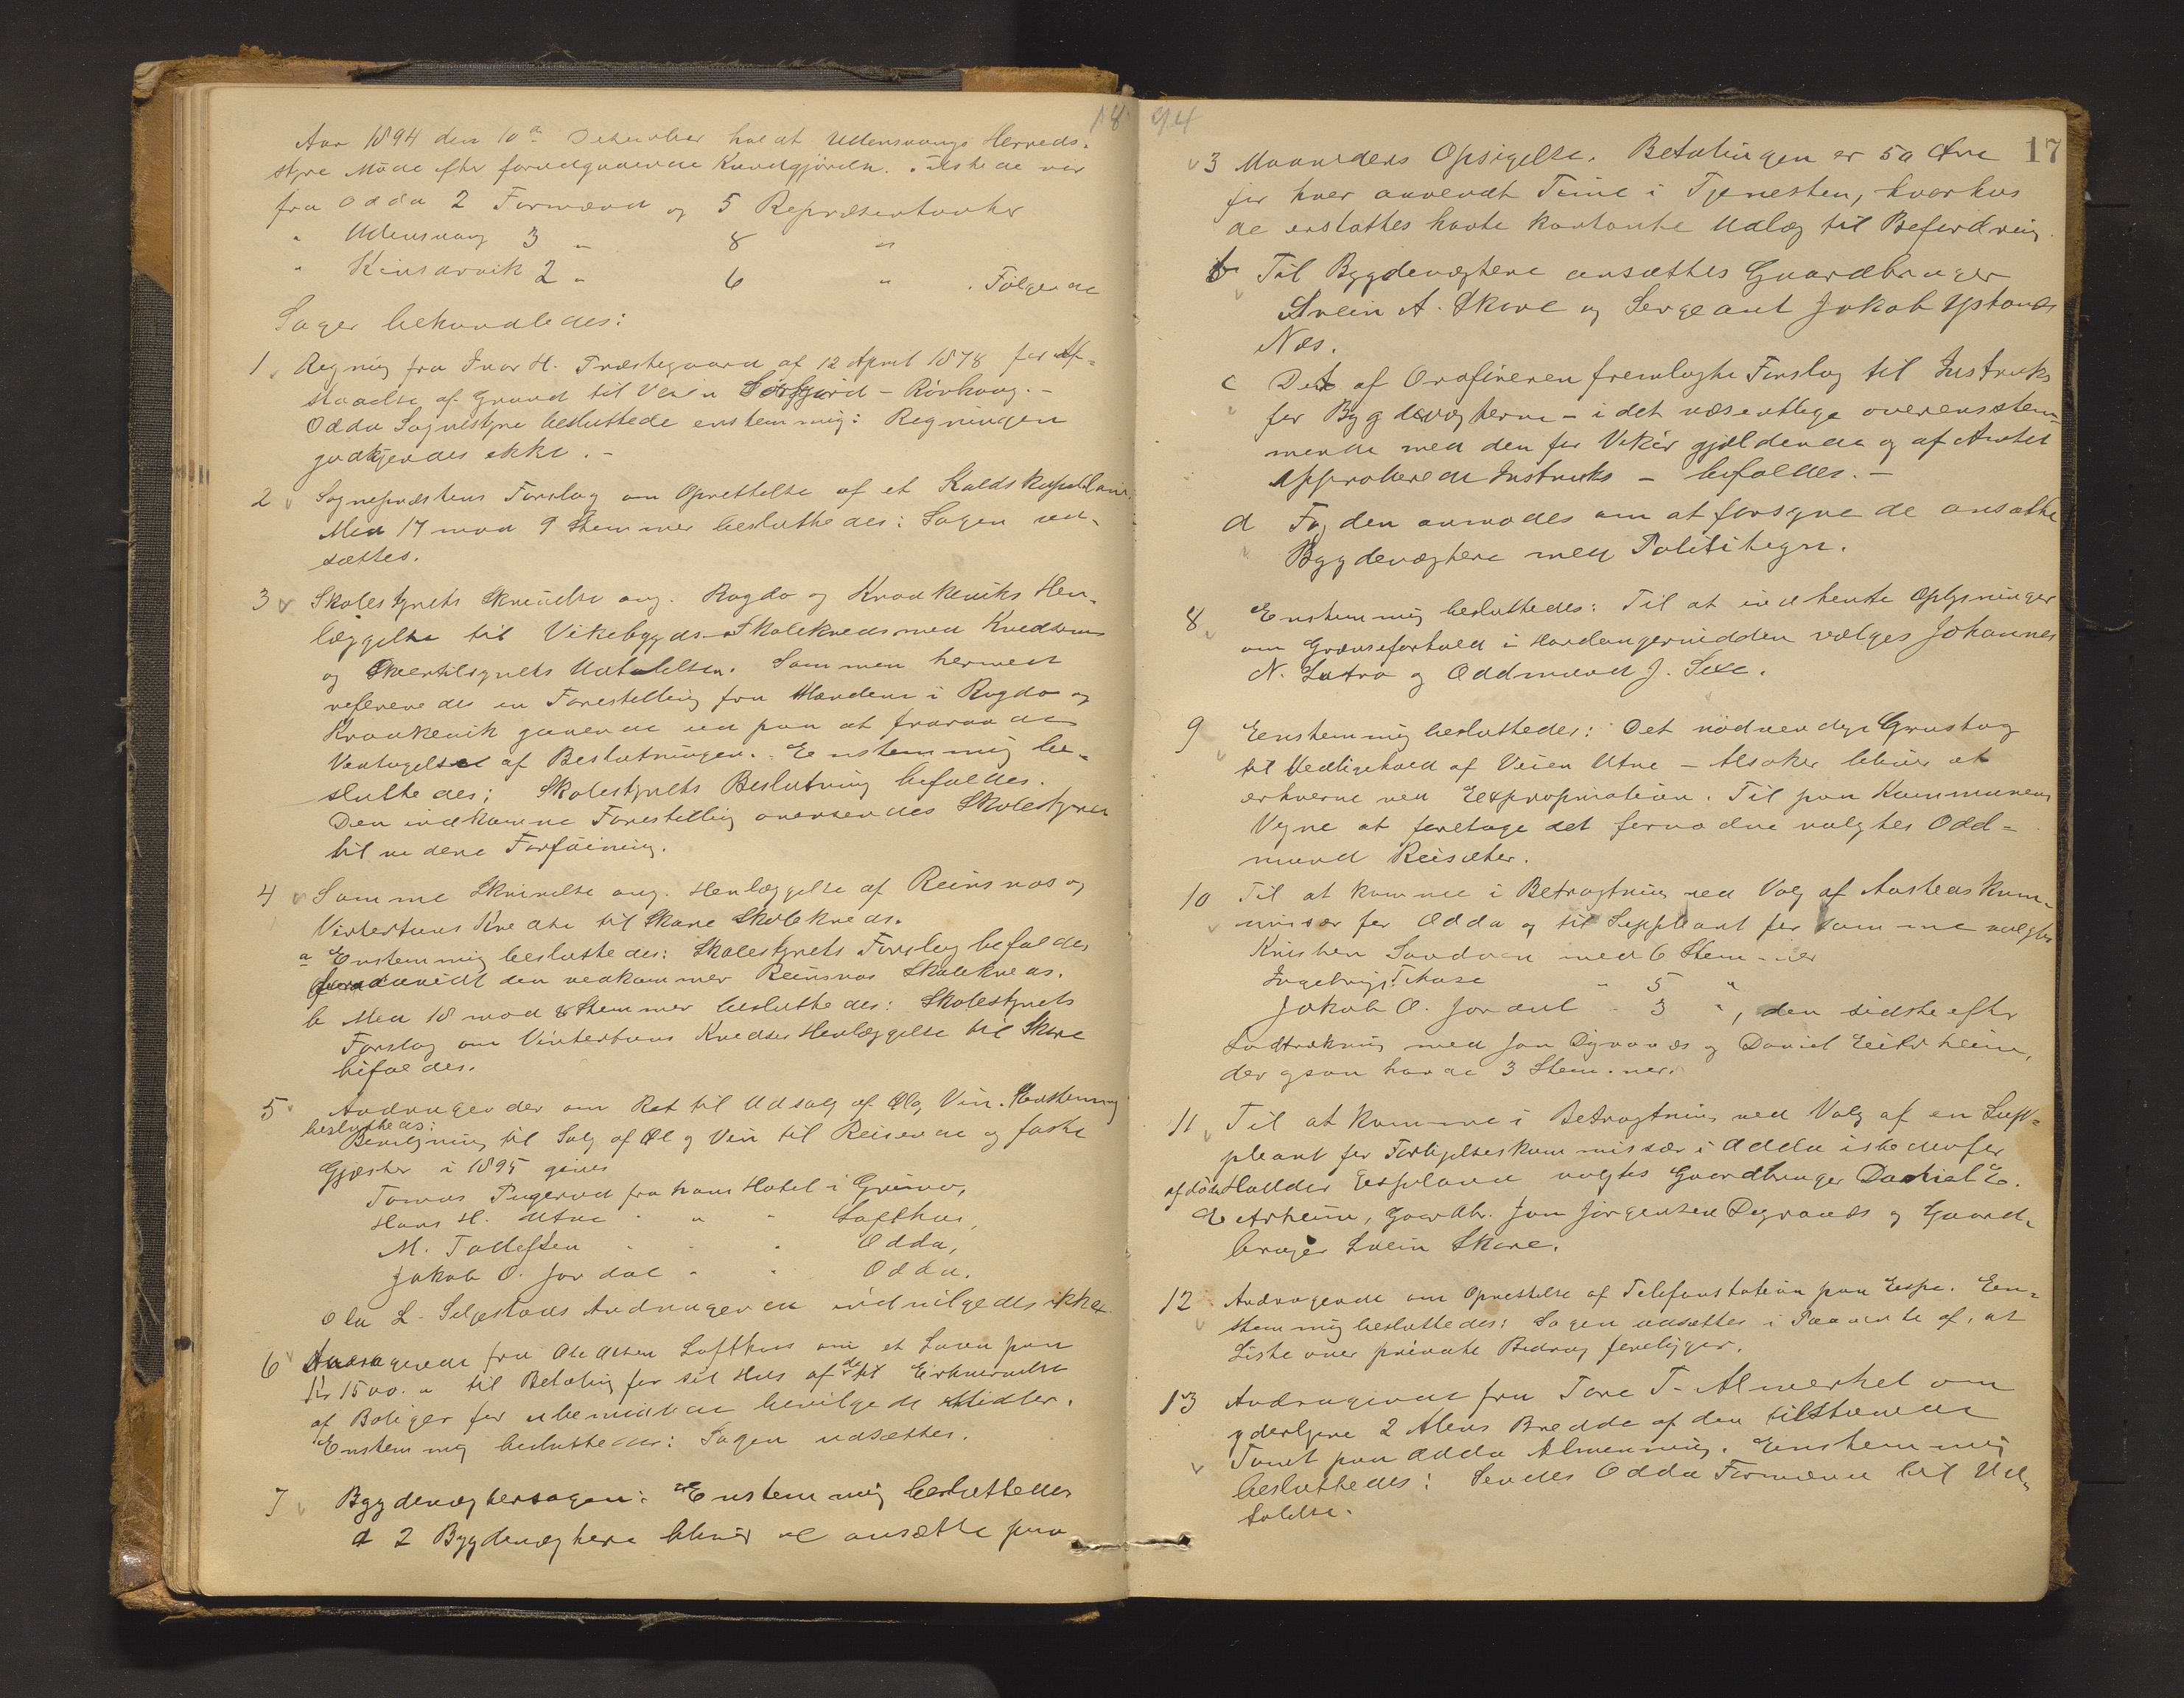 18
Aar 1894 den 10de December holdt Udensvangs Herreds-
styre Møde efter foregaaende Kundgjørelse. Tilstede var
fra Odda 2 Formænd og 5 Repræsentanter
" Udensvang 3 " 8 "
" Kinsarvik 2 " 6 " . Følgende
Sager behandledes:
1 Regning fra Ivar H. Træstegaard af 12 April 1878 for Af-
staaelse af Grund til Veien Sørfjord - Rövhaug. -
Odda Sognestyre besluttede enstemmig: Regningen
godkjendes ikke. -
2 Sognepræstens Forslag om Oprettelse af et Kaldskapellani.
Med 17 mod 9 Stemmer besluttedes: Sagen ud-
sættes.
3 Skolestyrets Skrivelse ang. Ragde og Kraakeviks Hen-
læggelse til Vikebygds Skolekreds med Kredsens
og Skoletilsynets Udtalelser. Sammen hermed
refereredes en Forestilling fra Mændene i Ragde og
Kraakevik gaaende ud paa at fraraade
Vedtagelse af Beslutningen. Enstemmig be-
sluttedes: Skolestyrets Beslutning bifaldes.
Den indkomne Forestilling oversendes Skolestyret
til videre Forføining.
4 Samme Skrivelse ang. Henlæggelse af Reinsnos og
Vintertuns Kredse til Skare Skolekreds.
a Enstemmig besluttedes: Skolestyrets Forslag bifaldes
forsaavidt den vedkommer Reinsnos Skolekreds.
b Med 18 mod 8 Stemmer besluttedes: Skolestyrets
Forslag om Vintertuns Kredses Henlæggelse til Skare
bifaldes.
5 Andragender om Ret til Udsalg af Øl og Vin. Enstemmig
besluttedes:
Bevilgning til Salg af Øl og Vin til Reisende og faste
Gjæster i 1895 gives
Tomas Pugerud fra hans Hotel i Grimo,
Hans H. Utne " " " Lofthus,
M. Tollefsen " " " Odda,
Jakob O. Jordal " " Odda.
Ola L. Seljestads Andragende indvilgedes ikke.
6 Andragende fra Ole Olsen Lofthus om et Laan paa
Kr 1500. " til Betaling for sit Hus af de til Erhvervelse
af Boliger for ubemidlede bevilgede Midler.
Enstemmig besluttedes: Sagen udsættes.
7 Bygdevægtersagen: Enstemmig besluttedes
a 2 Bygdevægtere bliver at ansætte paa
94
17
3 Maaneders Opsigelse. Betalingen er 50 Øre
for hver anvendt Time i Tjenesten, hvorhos
de erstattes havte kontante Udlæg til Befordring.
b Til Bygdevægtere ansættes Gaardbruger
Svein A. Skare og Sergeant Jakob Ystanes
Næs.
c Det af Ordføreren fremlagte Forslag til Instruks
for Bygdevægterne - i det væsentlige overensstem-
mende med den for Vikør gjældende og af Amtet
approberede Instruks - bifaldes. -
d Fogden anmodes om at forsyne de ansatte
Bygdevægtere med Polititegn.
8 Enstemmig besluttedes: Til at indhente Oplysninger
om Grænseforhold i Hardangervidden vælges Johannes
N. Lutro og Oddmund J. Sexe.
9 Eenstemmig besluttedes: Det nødvendige Grustag
til Vedligehold af Veien Utne - Alsaker bliver at
erhverve ved Expropriation. Til paa Kommunens
Vegne at foretage det fornødne valgtes Odd-
mund Reisæter.
10 Til at komme i Betragtning ved Valg af Aasteds Kom-
missær for Odda og til Suppleant for samme valgtes
Kristen Sandven med 6 Stemmer
Ingebrigt Mose " 5 "
Jakob O. Jordal " 3 ", den sidste efter
Lodtrækning med Jon Digranæs og Daniel Eitrheim,
der ogsaa havde 3 Stemmer.
11 Til at komme i Betragtning ved Valg af en Sup-
pleant for Forligelseskommissær i Odda istedenfor
afdøde Halldor Espeland valgtes Gaardbruger Daniel E.
Eitrheim, Gaardbr. Jon Jørgensen Digranæs og Gaard-
bruger Svein Skare.
12 Andragende om Oprettelse af Telefonstation paa Espe. Een-
stemmig besluttedes: Sagen udsættes i Paavente af, at
Liste over private Bidrag foreligger.
13 Andragende fra Tore T. Almerket om
yderligere 2 Alens Bredde af den tilstaaede
Tomt paa Odda Almenning. Eenstemmig
besluttedes: Sendes Odda Formænd til Ud-
talelse.